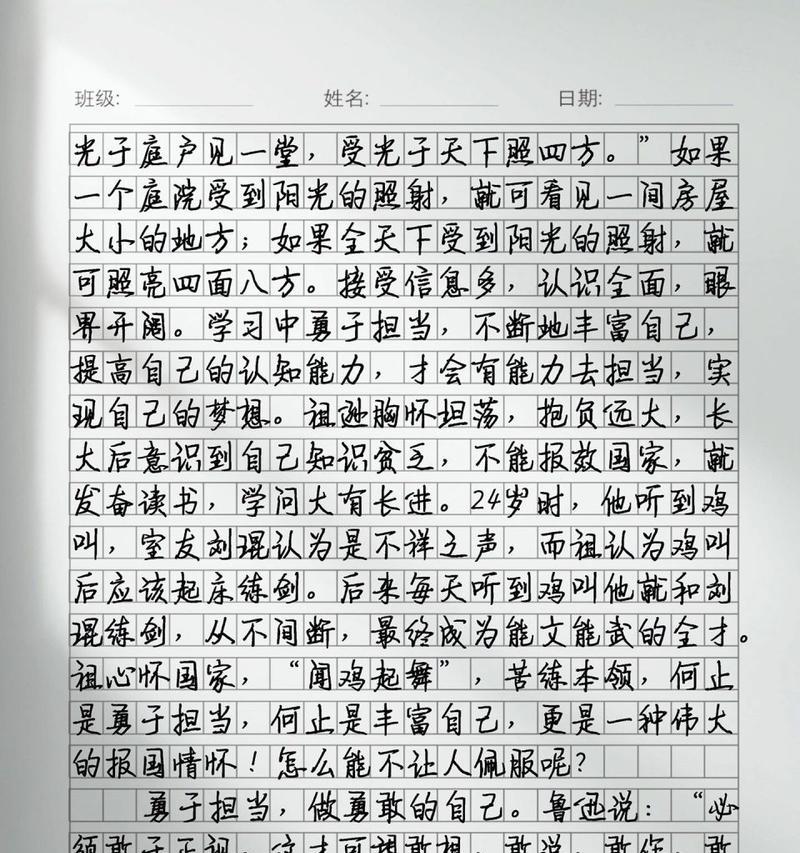 班级: 姓名: 日期:
光于庭户见一堂，受光于天下照四方。”如果
一个庭院受到阳光的照射，就可看见一间房屋
大小的地方；如果全天下受到阳光的照射，就
可照亮四面八方。接受信息多，认识全面，眼
界开阔。学习中勇于担当，不断地丰富自己，
提高自己的认知能力，才会有能力去担当，实
现自己的梦想。祖逊胸怀坦荡，抱负远大，长
大后意识到自己知识贫乏，不能报效国家，就
发奋读书，学问大有长进。24岁时，他听到鸡
叫，室友刘琨认为是不祥之声，而祖认为鸡叫
后应该起床练剑。后来每天听到鸡叫他就和刘
琨练剑，从不间断，最终成为能文能武的全才。
祖心怀国家，“闻鸡起舞”，苦练本领，何止
是勇于担当，何止是丰富自己，更是一种伟大
的报国情怀！怎么能不让人佩服呢？
勇于担当，做勇敢的自己。鲁迅说：“必
须敢于正视，这才可望敢想，敢说，敢作，敢